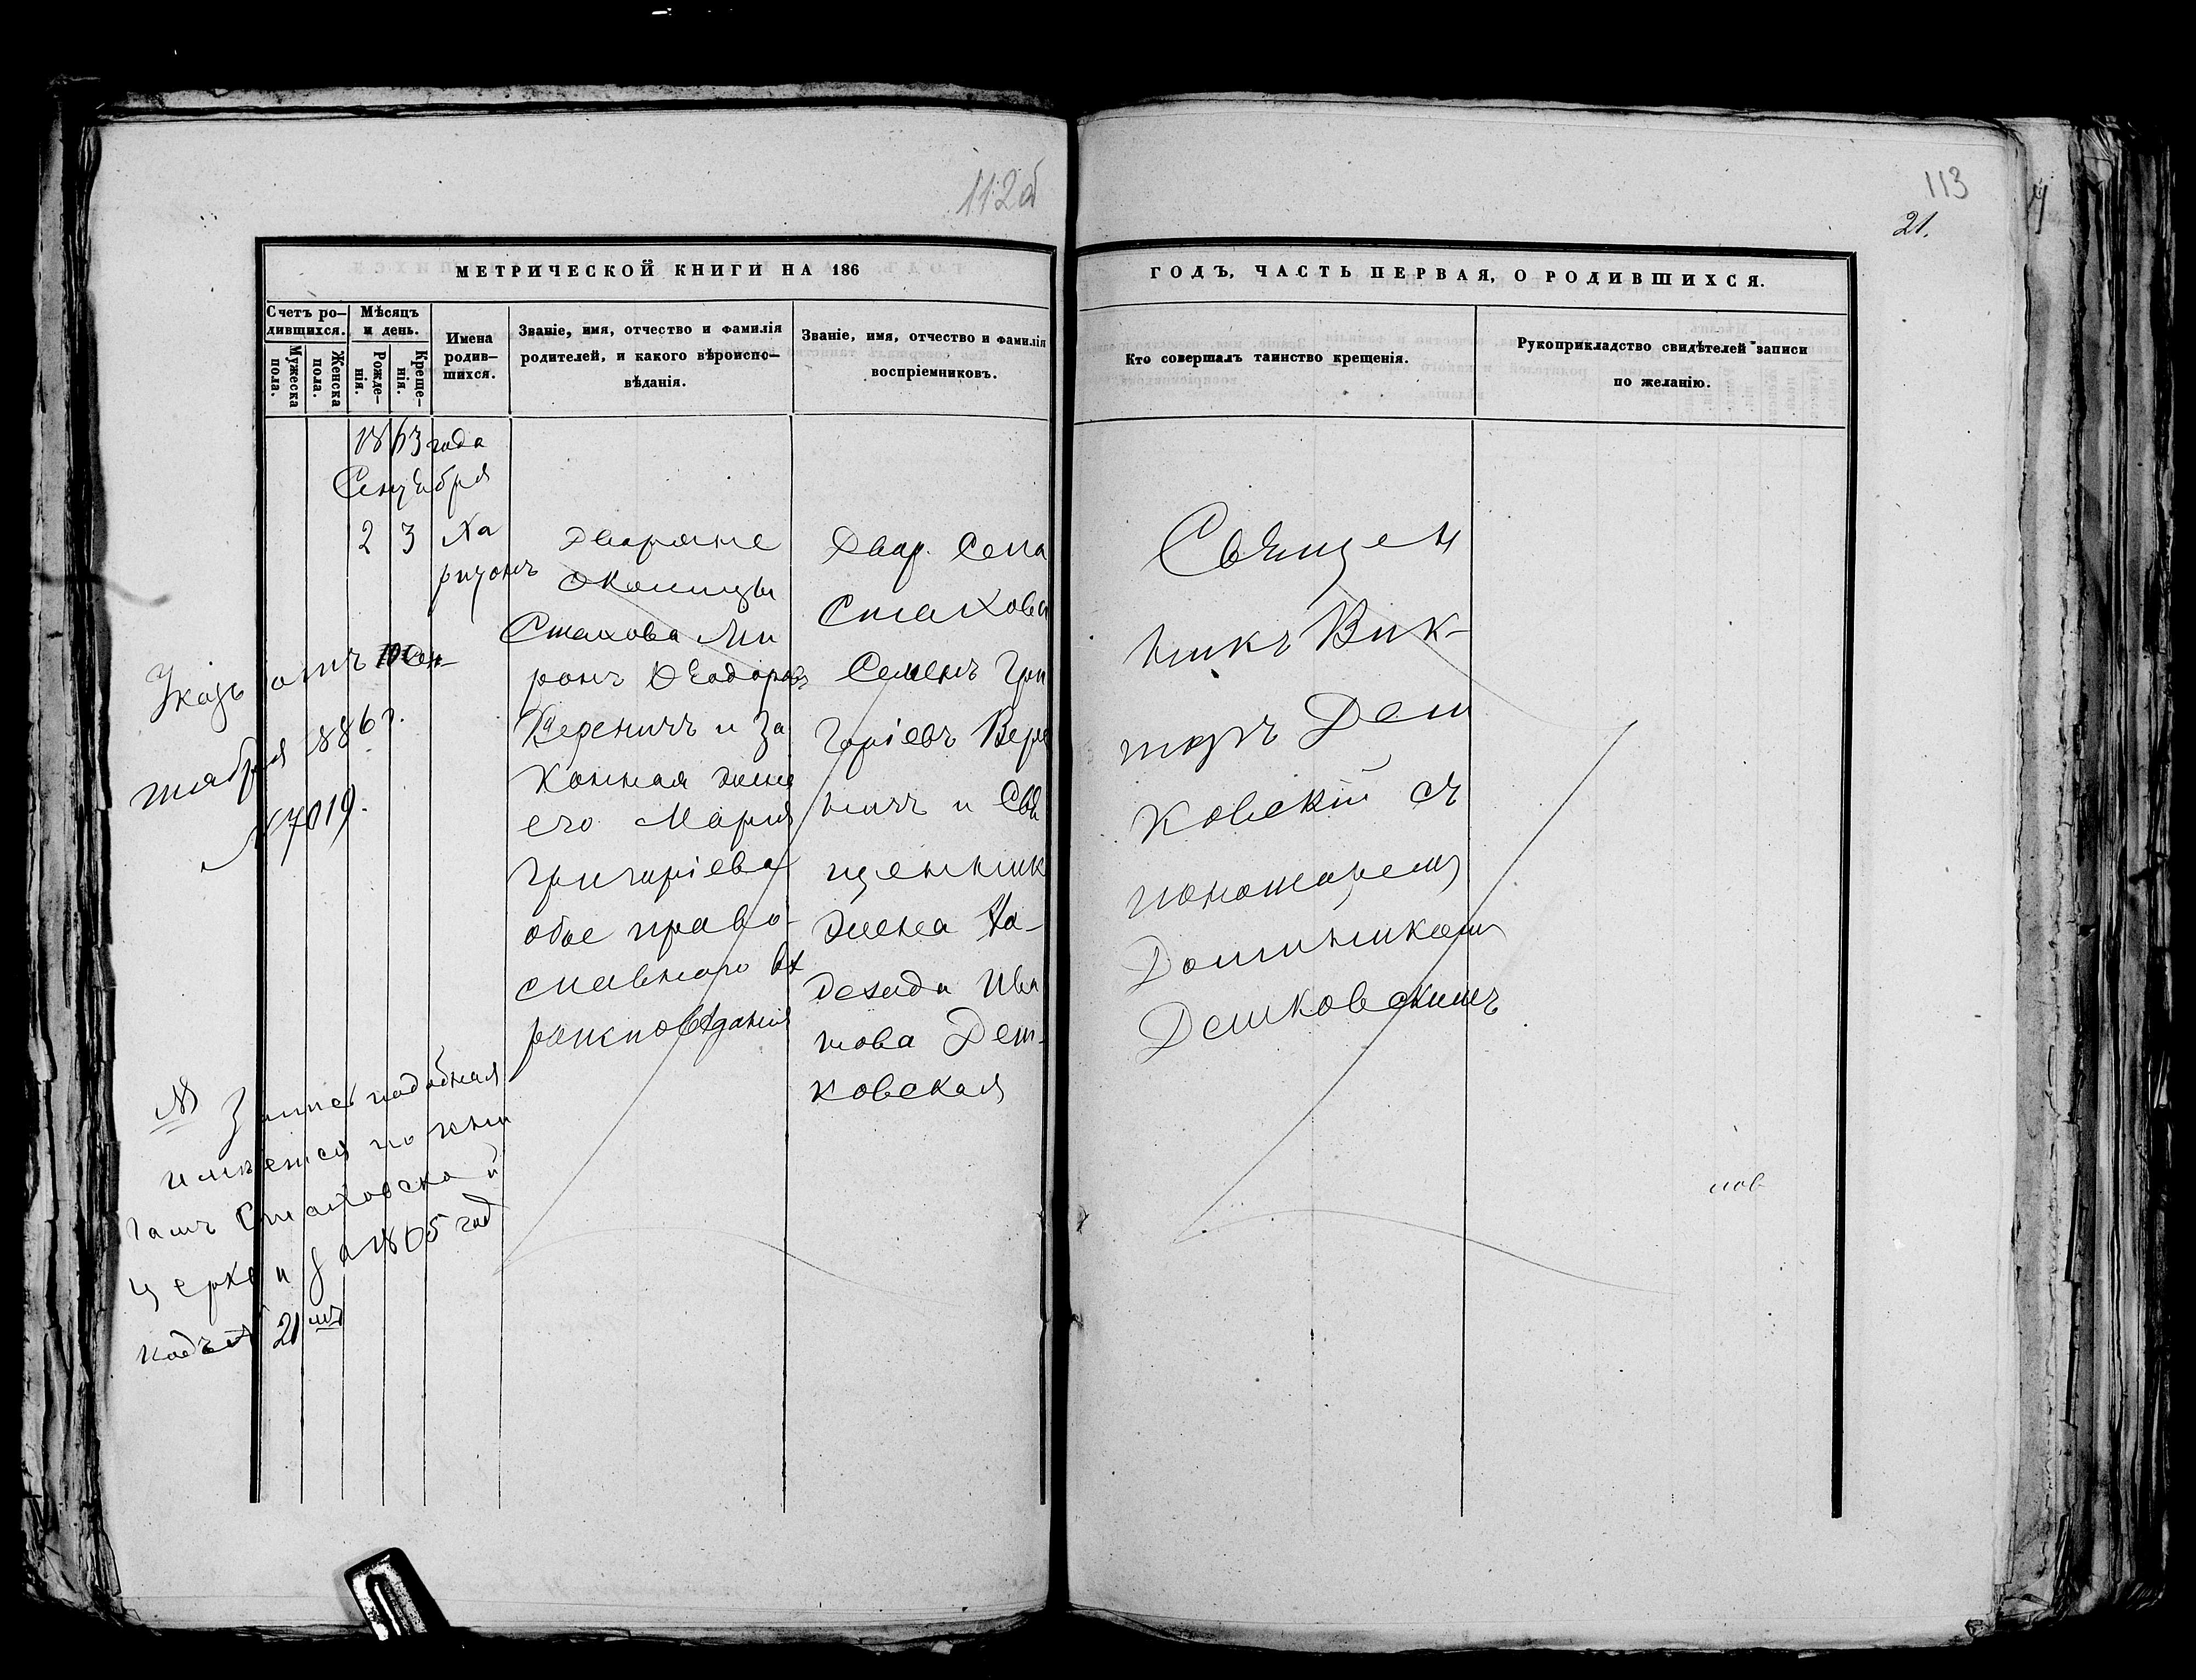 112об
113
21.
МЕТРИЧЕСКОЙ КНИГИ НА 186
ГОДЪ, ЧАСТЬ ПЕРВАЯ, О РОДИВШИХСЯ.
Счетъ ро-
дившихся.
Мужеска
пола.
Женска
пола.
Мѣсяцъ
и день.
Рожде-
нія.
Креще-
нія.
Имена
родив-
шихся.
Званіе, имя, отчество и фамилія
родителей, и какого вѣроиспо-
вѣданія.
Званіе, имя, отчество и фамилія
воспріемниковъ.
Кто совершалъ таинство крещенія.
Рукоприкладство свидѣтелей записи
по желанію.
1863 года
Сентября
2 3
Ха
ритонъ
Дворяне
Околицы
Стахова Ми
ронъ Ѳеодоровъ
Вереничъ и за
конная жена
его Марія
Григоріева
обое право-
славнаго вѣ
роисповѣданія
Двор. Села
Стахова
Семенъ Гри
горіевъ Вере
ничъ и Свя
щенник
жена На-
дежда Ива
нова Деш-
ковская
Священ
никъ Вик-
торъ Деш
ковскій съ
пономаремъ
Доминикомъ
Дешковскимъ
Указъ отъ 10 Сен-
тября 1886 г.
№ 7019.
NB Запись подобная
имѣется по кни
гамъ Стаховской
церкви за 1865 год
подъ № 21мъ
нов